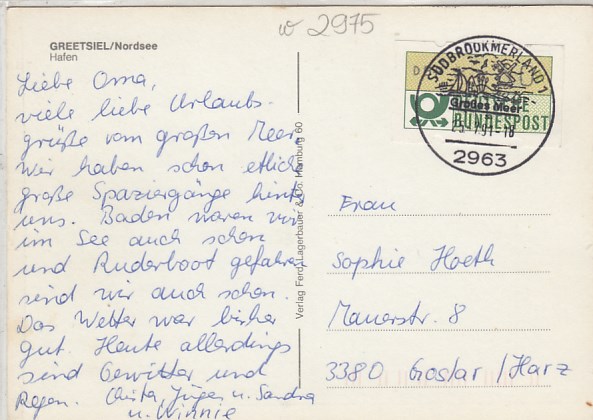 w 2975
GREETSIEL/Nordsee
Hafen
Liebe Oma,
viele liebe Urlaubs-
grüße vom großen Meer
Wir haben schon etliche
große Spaziergänge hinter
uns. Baden waren wir
im See auch schon
und Ruderboot gefahren
sind wir auch schon.
Das Wetter war bisher
gut. Heute allerdings
sind Gewitter und
Regen. Christa, Jürgen u. Sandra
u. Winnie
Verlag Ferd. Lagerbauer & Co. Hamburg 60
SÜDBROOKMERLAND 1
Großes Meer
91-18
2963
BUNDESPOST
Frau
Sophie Hoeth
Mauerstr. 8
3380 Goslar / Harz